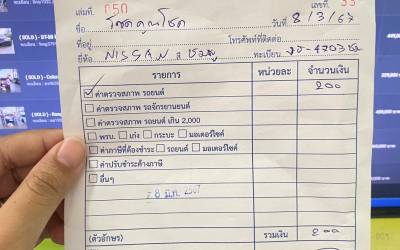 เล่มที่ 050 เลขที่ 33
ชื่อ โชคคูณโชค วันที่ 8/3/67
ที่อยู่ โทรศัพท์ที่ติดต่อ
ยี่ห้อ NISSAN ทะเบียน
รายการ หน่วยละ จำนวนเงิน
ค่าตรวจสภาพ รถยนต์ 200
ค่าตรวจสภาพ รถจักรยานยนต์
ค่าตรวจสภาพ รถยนต์ เกิน 2,000
พรบ. เก๋ง กระบะ มอเตอร์ไซค์
ค่าภาษีที่ต้องชำระ รถยนต์ มอเตอร์ไซค์
ค่าปรับชำระค้างภาษี
อื่นๆ
8 มี.ค. 2567
(ตัวอักษร) รวมเงิน 200